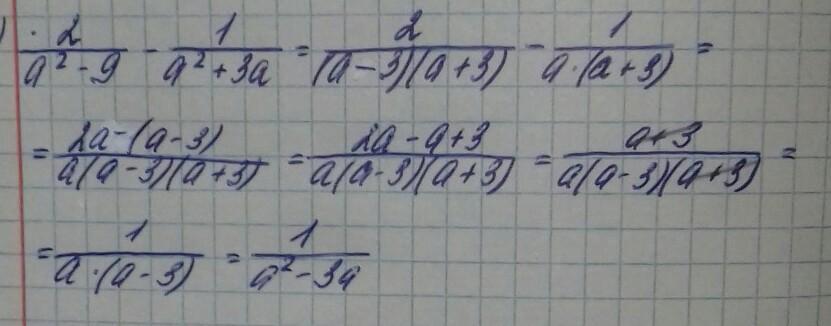 ) 2/(a² - 9) - 1/(a² + 3a) = 2/((a - 3)(a + 3)) - 1/(a · (a + 3)) =
= (2a - (a - 3))/(a(a - 3)(a + 3)) = (2a - a + 3)/(a(a - 3)(a + 3)) = (a + 3)/(a(a - 3)(a + 3)) =
= 1/(a · (a - 3)) = 1/(a² - 3a)